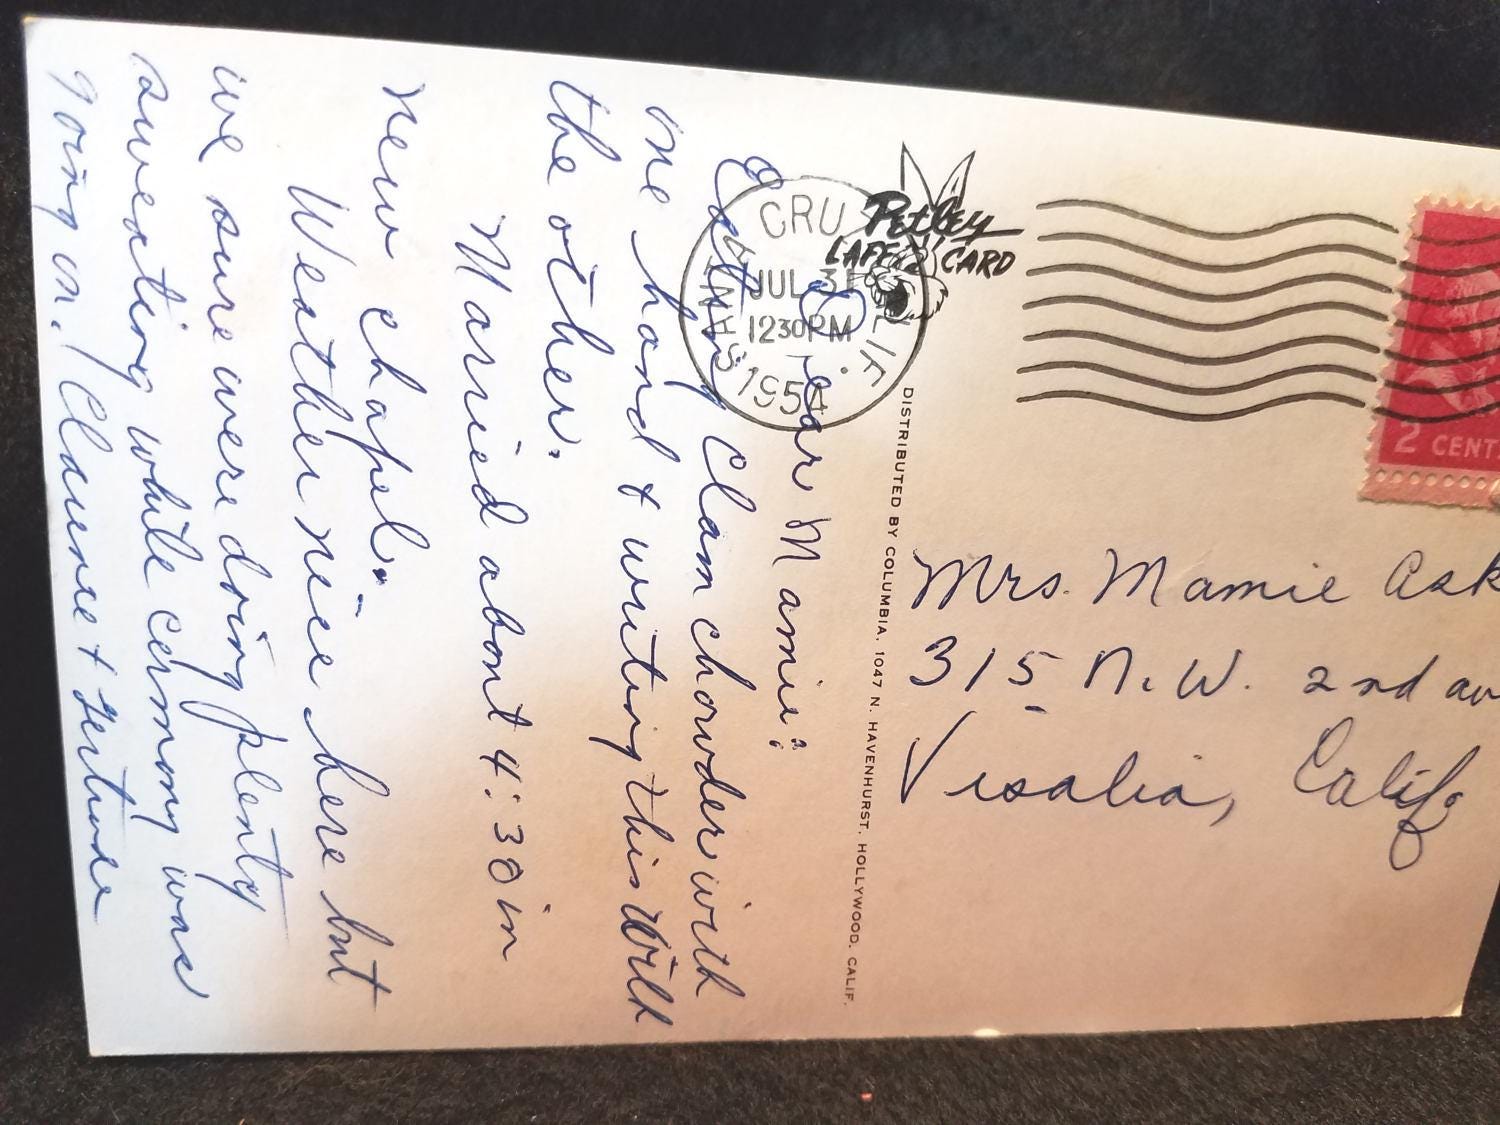 Dear Mamie:
Eating Clam chowder with
one hand & writing this with
the other.
Married about 4:30 in
new chapel.
Weather nice here but
we sure were doing plenty
sweating while cermony was
going on. Clarence & Gertrude
CRU
CALIF.
JUL 31
1230PM
1954
Petley
LAFF CARD
DISTRIBUTED BY COLUMBIA, 1047 N. HAVENHURST, HOLLYWOOD, CALIF.
2 CENT
Mrs. Mamie Ask
315 N.W. 2nd av
Visalia, Calif